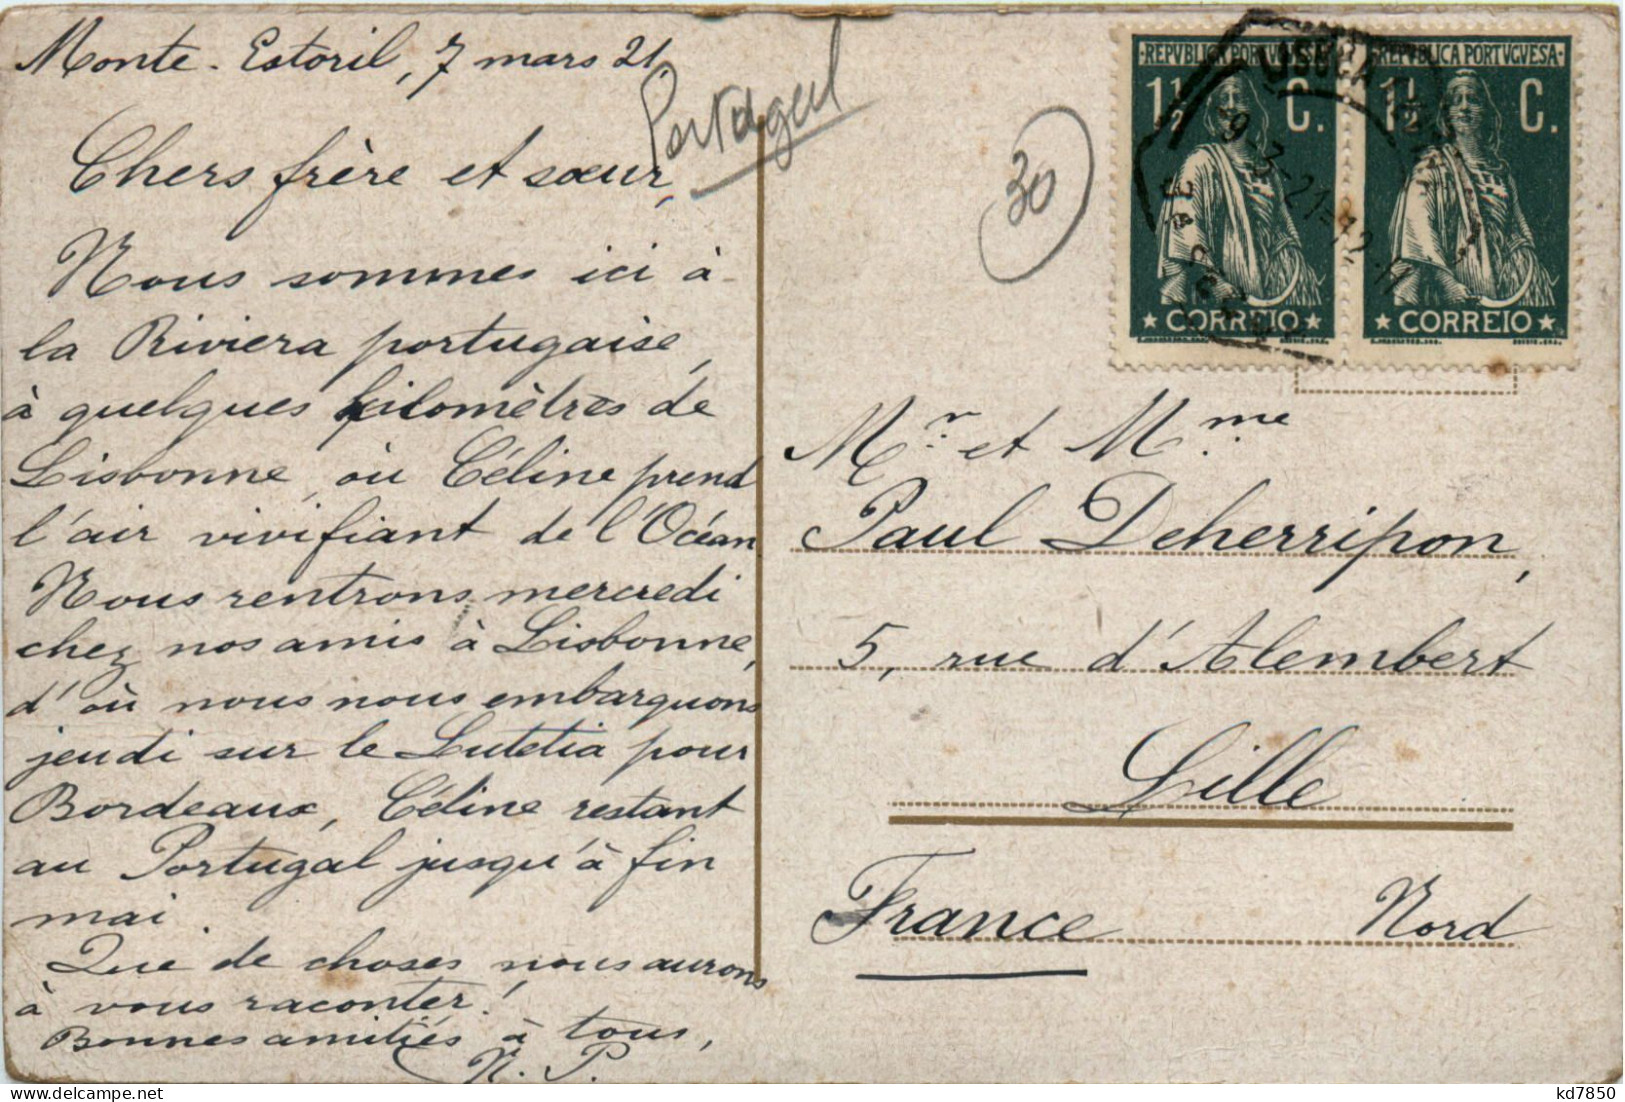 Monte-Estoril, 7 mars 21.
Portugal
30
Chers frère et sœur,
Nous sommes ici à
la Riviera portugaise,
à quelques kilomètres de
Lisbonne, où Céline prend
l'air vivifiant de l'Océan.
Nous rentrons mercredi
chez nos amis à Lisbonne,
d'où nous nous embarquons
jeudi sur le Lutetia pour
Bordeaux, Céline restant
au Portugal jusqu'à fin
mai.
Que de choses nous aurons
à vous raconter!
Bonnes amitiés à tous,
N. P.
·REPVBLICA PORTVGVESA·
1½ C.
★ CORREIO ★
·REPVBLICA PORTVGVESA·
1½ C.
★ CORREIO ★
9-3-21
Mr. et Mme.
Paul Deherripon,
5, rue d'Alembert
Lille
France Nord
kd7850